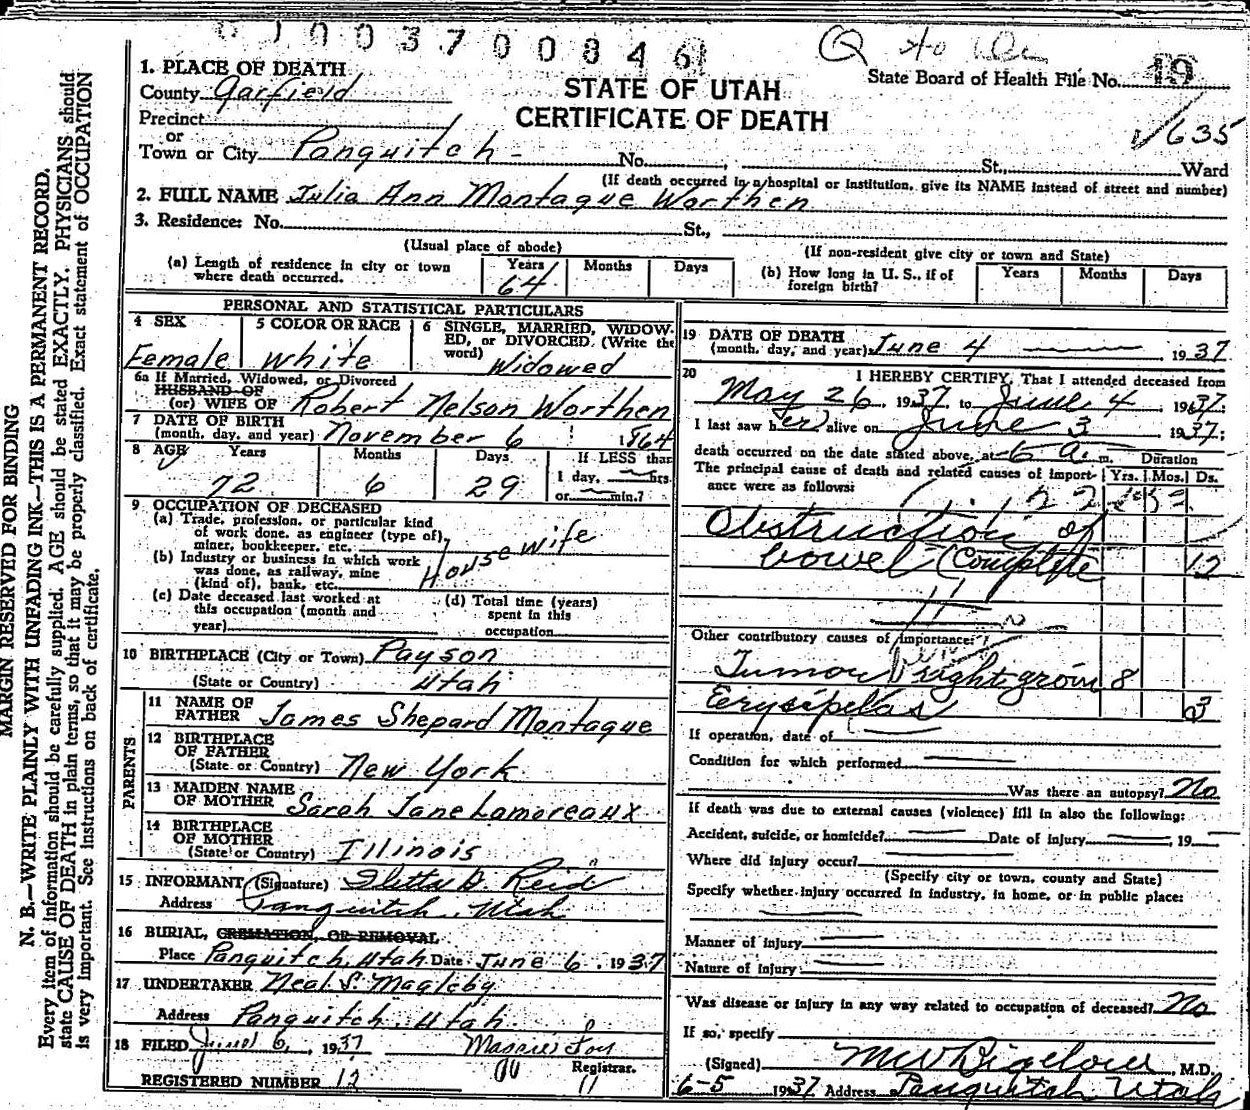 0 1 0 0 3 7 0 0 8 4 6
State Board of Health File No. 19
635
STATE OF UTAH
CERTIFICATE OF DEATH
1. PLACE OF DEATH
County Garfield
Precinct
or
Town or City Panguitch - No. , St., Ward
(If death occurred in a hospital or institution, give its NAME instead of street and number)
2. FULL NAME Julia Ann Montague Worthen
3. Residence: No. St.,
(Usual place of abode) (If non-resident give city or town and State)
(a) Length of residence in city or town where death occurred. Years 64 Months Days
(b) How long in U. S., if of foreign birth? Years Months Days
PERSONAL AND STATISTICAL PARTICULARS
4 SEX Female
5 COLOR OR RACE White
6 SINGLE, MARRIED, WIDOWED, or DIVORCED (Write the word) Widowed
6a If Married, Widowed, or Divorced
HUSBAND OF
(or) WIFE OF Robert Nelson Worthen
7 DATE OF BIRTH
(month, day, and year) November 6 1864
8 AGE Years 72 Months 6 Days 29
If LESS than
1 day, hrs.
or min.?
9 OCCUPATION OF DECEASED
(a) Trade, profession, or particular kind
of work done, as engineer (type of),
miner, bookkeeper, etc.
Housewife
(b) Industry or business in which work
was done, as railway, mine
(kind of), bank, etc.
(c) Date deceased last worked at
this occupation (month and
year)
(d) Total time (years)
spent in this
occupation
10 BIRTHPLACE (City or Town) Payson
(State or Country) Utah
PARENTS
11 NAME OF
FATHER James Shepard Montague
12 BIRTHPLACE
OF FATHER
(State or Country) New York
13 MAIDEN NAME
OF MOTHER Sarah Jane Lamoreaux
14 BIRTHPLACE
OF MOTHER
(State or Country) Illinois
15 INFORMANT (Signature) D. Reid
Address Panguitch, Utah
16 BURIAL, CREMATION, OR REMOVAL
Place Panguitch, Utah Date June 6, 1937
17 UNDERTAKER Neal S. Magleby
Address Panguitch, Utah.
18 FILED June 6, 1937
Registrar.
REGISTERED NUMBER 12
19 DATE OF DEATH
(month, day, and year) June 4 1937
20 I HEREBY CERTIFY, That I attended deceased from
May 26, 1937 to June 4, 1937
I last saw her alive on June 3 1937;
death occurred on the date stated above, at 6 a. m. Duration
The principal cause of death and related causes of importance were as follows: Yrs. Mos. Ds.
Obstruction of
bowel (Complete 12
Other contributory causes of importance:
Tumor right groin 8
Erysipelas 3
If operation, date of
Condition for which performed
Was there an autopsy? No
If death was due to external causes (violence) fill in also the following:
Accident, suicide, or homicide? Date of injury , 19
Where did injury occur?
(Specify city or town, county and State)
Specify whether injury occurred in industry, in home, or in public place:
Manner of injury
Nature of injury
Was disease or injury in any way related to occupation of deceased? No
If so, specify
(Signed) M W Bigelow, M.D.
6-5 1937 Address Panguitch Utah
MARGIN RESERVED FOR BINDING
N. B.—WRITE PLAINLY WITH UNFADING INK—THIS IS A PERMANENT RECORD.
Every item of information should be carefully supplied. AGE should be stated EXACTLY. PHYSICIANS should
state CAUSE OF DEATH in plain terms, so that it may be properly classified. Exact statement of OCCUPATION
is very important. See instructions on back of certificate.